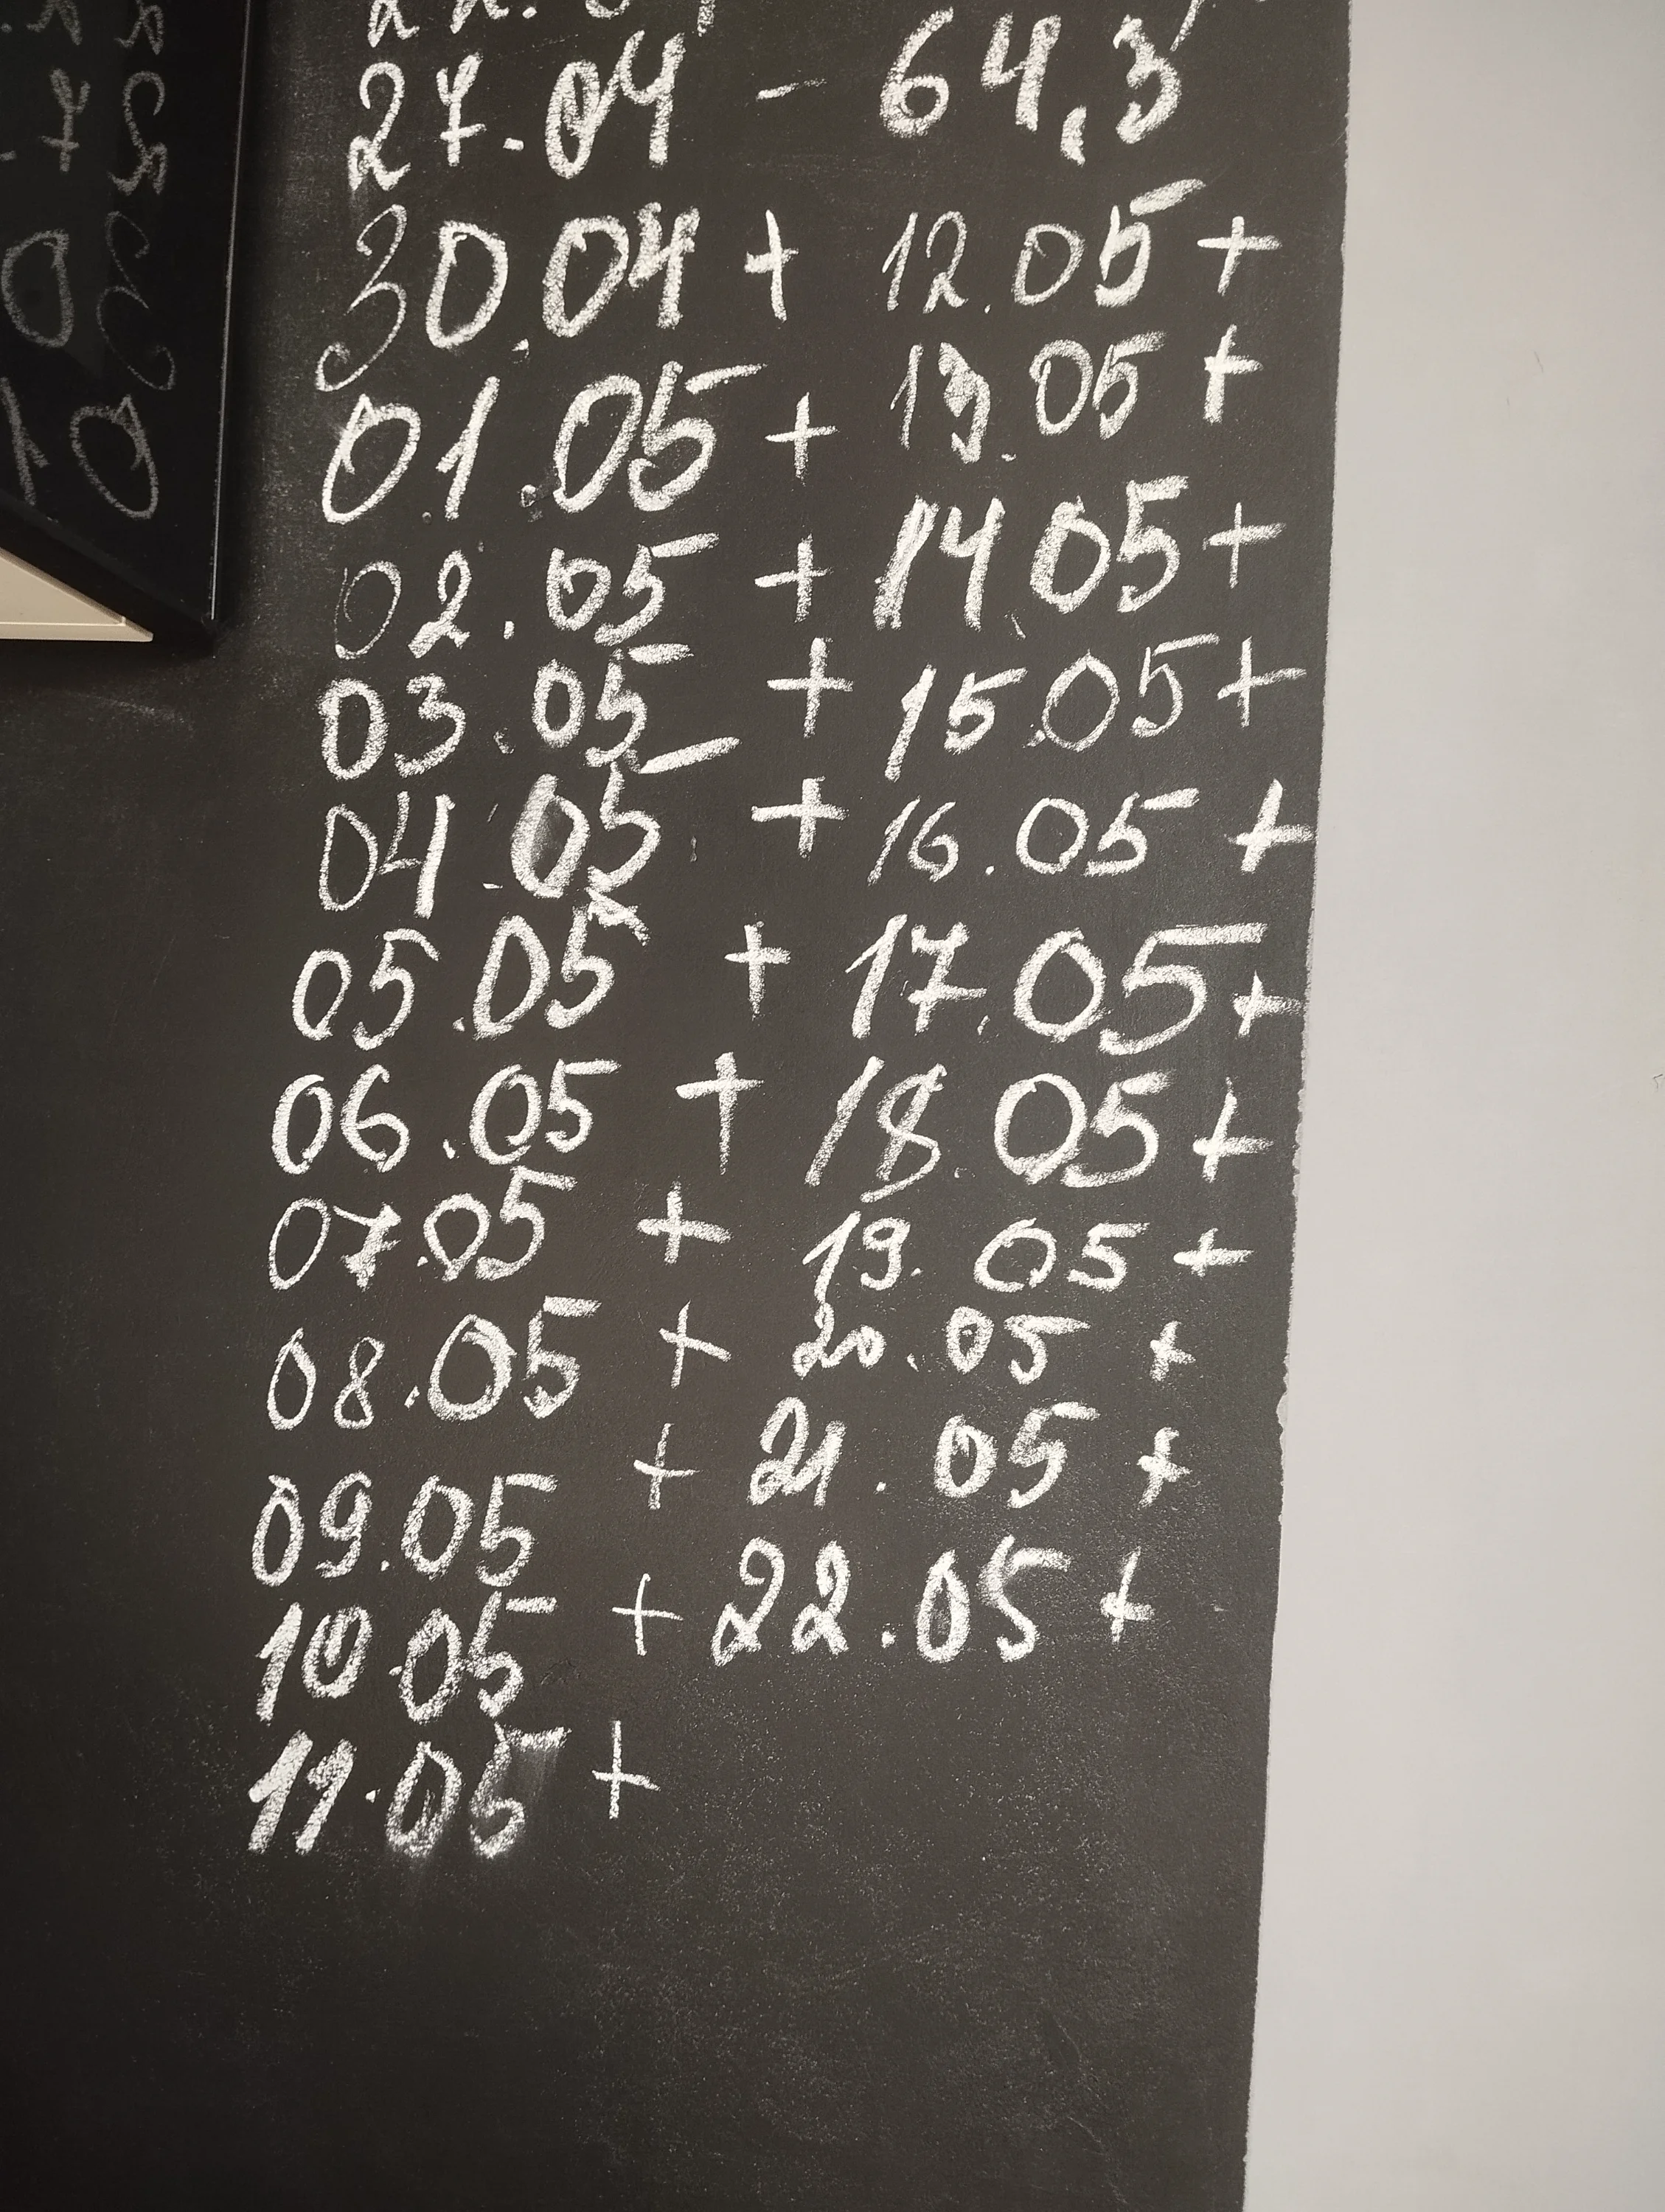 27.04 - 64,3
30.04 + 12.05 +
01.05 + 13.05 +
02.05 + 14.05 +
03.05 + 15.05 +
04.05 + 16.05 +
05.05 + 17.05 +
06.05 + 18.05 +
07.05 + 19.05 +
08.05 + 20.05 +
09.05 + 21.05 +
10.05 + 22.05 +
11.05 +